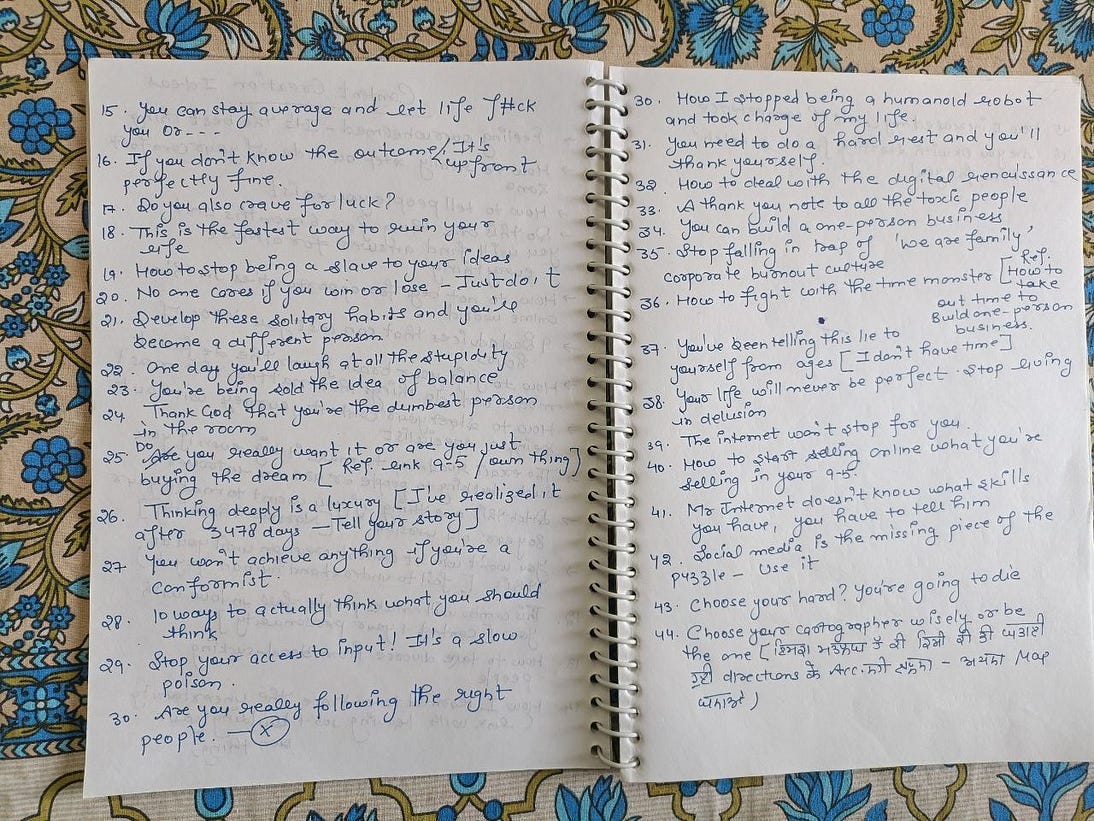 15. You can stay average and let life f#ck
you or---
16. If you don't know the outcome, It's
upfront
perfectly fine.
17. Do you also crave for luck?
18. This is the fastest way to ruin your
life
19. How to stop being a slave to your ideas
20. No one cares if you win or lose - Just do it
21. Develop these solitary habits and you'll
become a different person
22. One day you'll laugh at all the stupidity
23. You're being sold the idea of balance
24. Thank God that you're the dumbest person
in the room
25. Do you really want it or are you just
buying the dream [Ref. link 9-5 / own thing]
26. Thinking deeply is a luxury [I've realized it
after 3478 days - Tell your story]
27. You won't achieve anything if you're a
conformist.
28. 10 ways to actually think what you should
think
29. Stop your access to input! It's a slow
poison.
30. Are you really following the right
people. — X
30. How I stopped being a humanoid robot
and took charge of my life.
31. You need to do a hard rest and you'll
thank yourself.
32. How to deal with the digital renaissance
33. A thank you note to all the toxic people
34. You can build a one-person business
35. Stop falling in trap of 'we are family'
corporate burnout culture
36. How to fight with the time monster [Ref.
How to
take
out time to
Build one-person
business.
37. You've been telling this lie to
yourself from ages [I don't have time]
38. Your life will never be perfect. Stop living
in delusion
39. The internet won't stop for you.
40. How to start selling online what you're
selling in your 9-5.
41. Mr Internet doesn't know what skills
you have, you have to tell him
42. Social media is the missing piece of the
puzzle - Use it
43. Choose your hard? You're going to die
44. Choose your cartographer wisely or be
the one [
directions के Acc. - अपना Map
बनाओ)